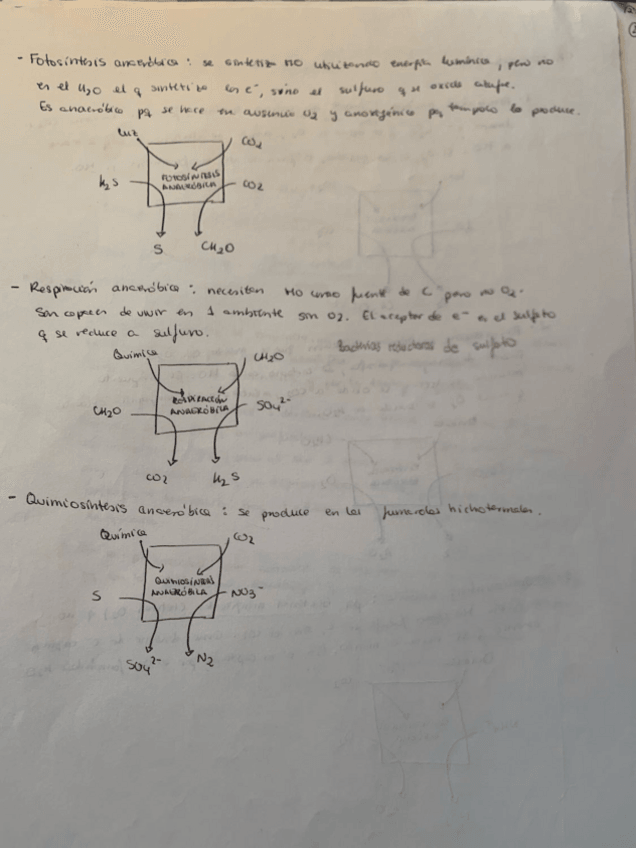 - Fotosíntesis anaeróbica : se sintetiza MO utilizando energía lumínica, pero no
es el H2O el q sintetiza los e-, sino el sulfuro q se oxida
Es anaeróbica pq se hace en ausencia O2 y anoxigénica pq tampoco lo produce.
Luz
CO2
FOTOSÍNTESIS
ANAERÓBICA
H2S
CO2
S
CH2O
- Respiración anaeróbica : necesitan MO como fuente de C pero no O2.
Son capaces de vivir en 1 ambiente sin O2. El aceptor de e- es el sulfato
q se reduce a sulfuro.
Bacterias reductoras de sulfato
Química
CH2O
RESPIRACIÓN
ANAERÓBICA
CH2O
SO4 2-
CO2
H2S
- Quimiosíntesis anaeróbica : se produce en las fumarolas
Química
CO2
QUIMIOSÍNTESIS
ANAERÓBICA
S
NO3-
SO4 2-
N2